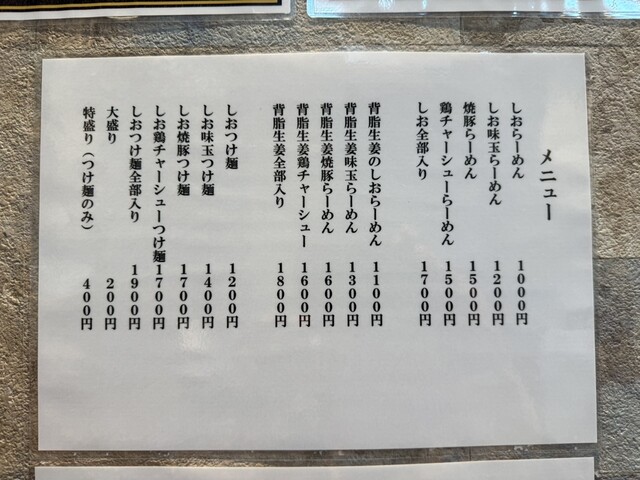 メニュー
しおらーめん 1000円
しお味玉らーめん 1200円
焼豚らーめん 1500円
鶏チャーシューらーめん 1500円
しお全部入り 1700円
背脂生姜のしおらーめん 1100円
背脂生姜味玉らーめん 1300円
背脂生姜焼豚らーめん 1600円
背脂生姜鶏チャーシュー 1600円
背脂生姜全部入り 1800円
しおつけ麺 1200円
しお味玉つけ麺 1400円
しお焼豚つけ麺 1700円
しお鶏チャーシューつけ麺 1700円
しおつけ麺全部入り 1900円
大盛り 200円
特盛り（つけ麺のみ） 400円